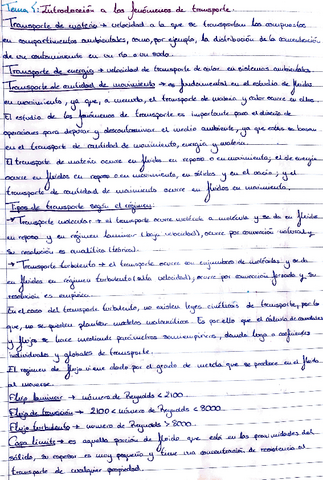 Tema 5: Introducción a los fenómenos de transporte.
Transporte de materia → velocidad a la que se transportan los compuestos
en compartimentos ambientales, como, por ejemplo, la distribución de la concentración
de un contaminante en un río o un suelo.
Transporte de energía → velocidad de transporte de calor en sistemas ambientales.
Transporte de cantidad de movimiento → es fundamental en el estudio de fluidos
en movimiento, ya que, a menudo, el transporte de materia y calor ocurre en ellos.
El estudio de los fenómenos de transporte es importante para el diseño de
operaciones para depurar y descontaminar el medio ambiente, ya que estas se basan
en el transporte de cantidad de movimiento, energía y materia.
El transporte de materia ocurre en fluidos en reposo o en movimiento; el de energía
ocurre en fluidos en reposo o en movimiento, en sólidos y en el vacío; y el
transporte de cantidad de movimiento ocurre en fluidos en movimiento.
Tipos de transporte según el régimen:
→ Transporte molecular → el transporte ocurre molécula a molécula y se da en fluidos
en reposo y en régimen laminar (baja velocidad), ocurre por convección natural y
su resolución es analítica (teórica).
→ Transporte turbulento → el transporte ocurre en conjuntos de moléculas y se da
en fluidos en régimen turbulento (alta velocidad), ocurre por convección forzada y su
resolución es empírica.
En el caso del transporte turbulento, no existen leyes cinéticas de transporte, por lo
que, no se pueden plantear modelos matemáticos. Es por ello que el cálculo de caudales
y flujos se hace mediante parámetros semiempíricos, dando lugar a coeficientes
individuales y globales de transporte.
El régimen de flujo viene dado por el grado de mezcla que se produce en el fluido
al moverse.
Flujo laminar → número de Reynolds < 2100.
Flujo de transición → 2100 < número de Reynolds < 8000.
Flujo turbulento → número de Reynolds > 8000.
Capa límite → es aquella porción de fluido que está en las proximidades del
sólido, su espesor es muy pequeño y tiene una concentración de resistencia al
transporte de cualquier propiedad.